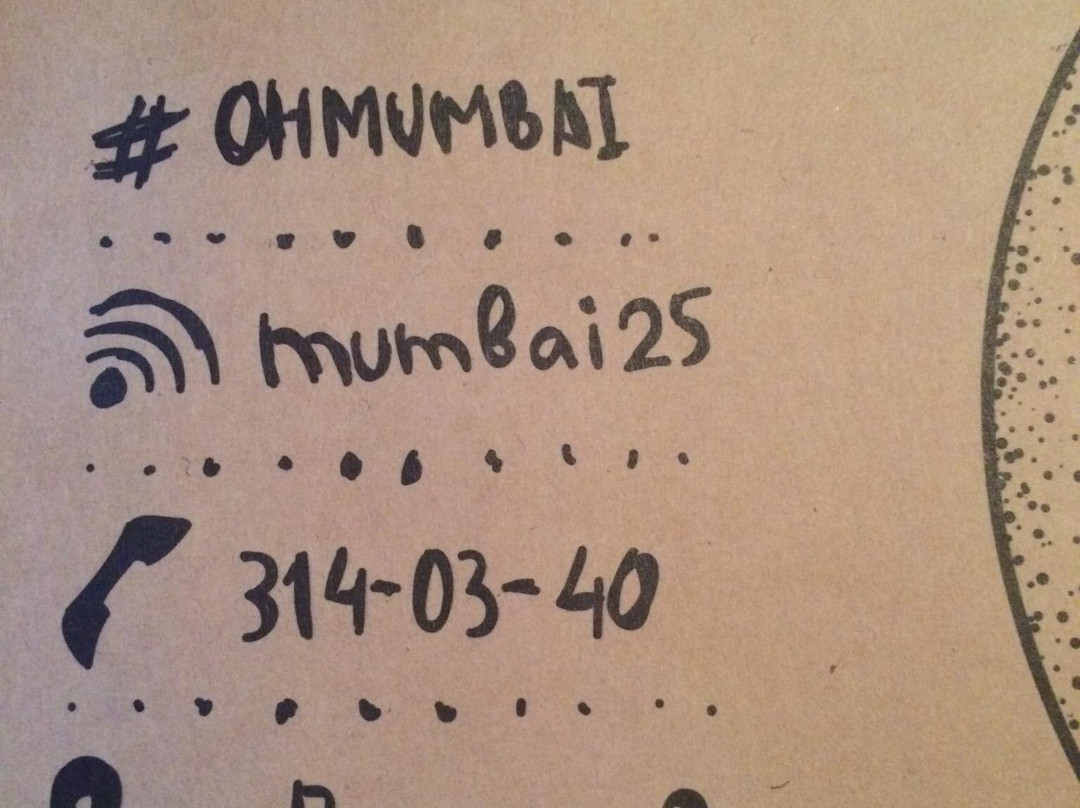 # OHMUMBAI
mumbai25
314-03-40